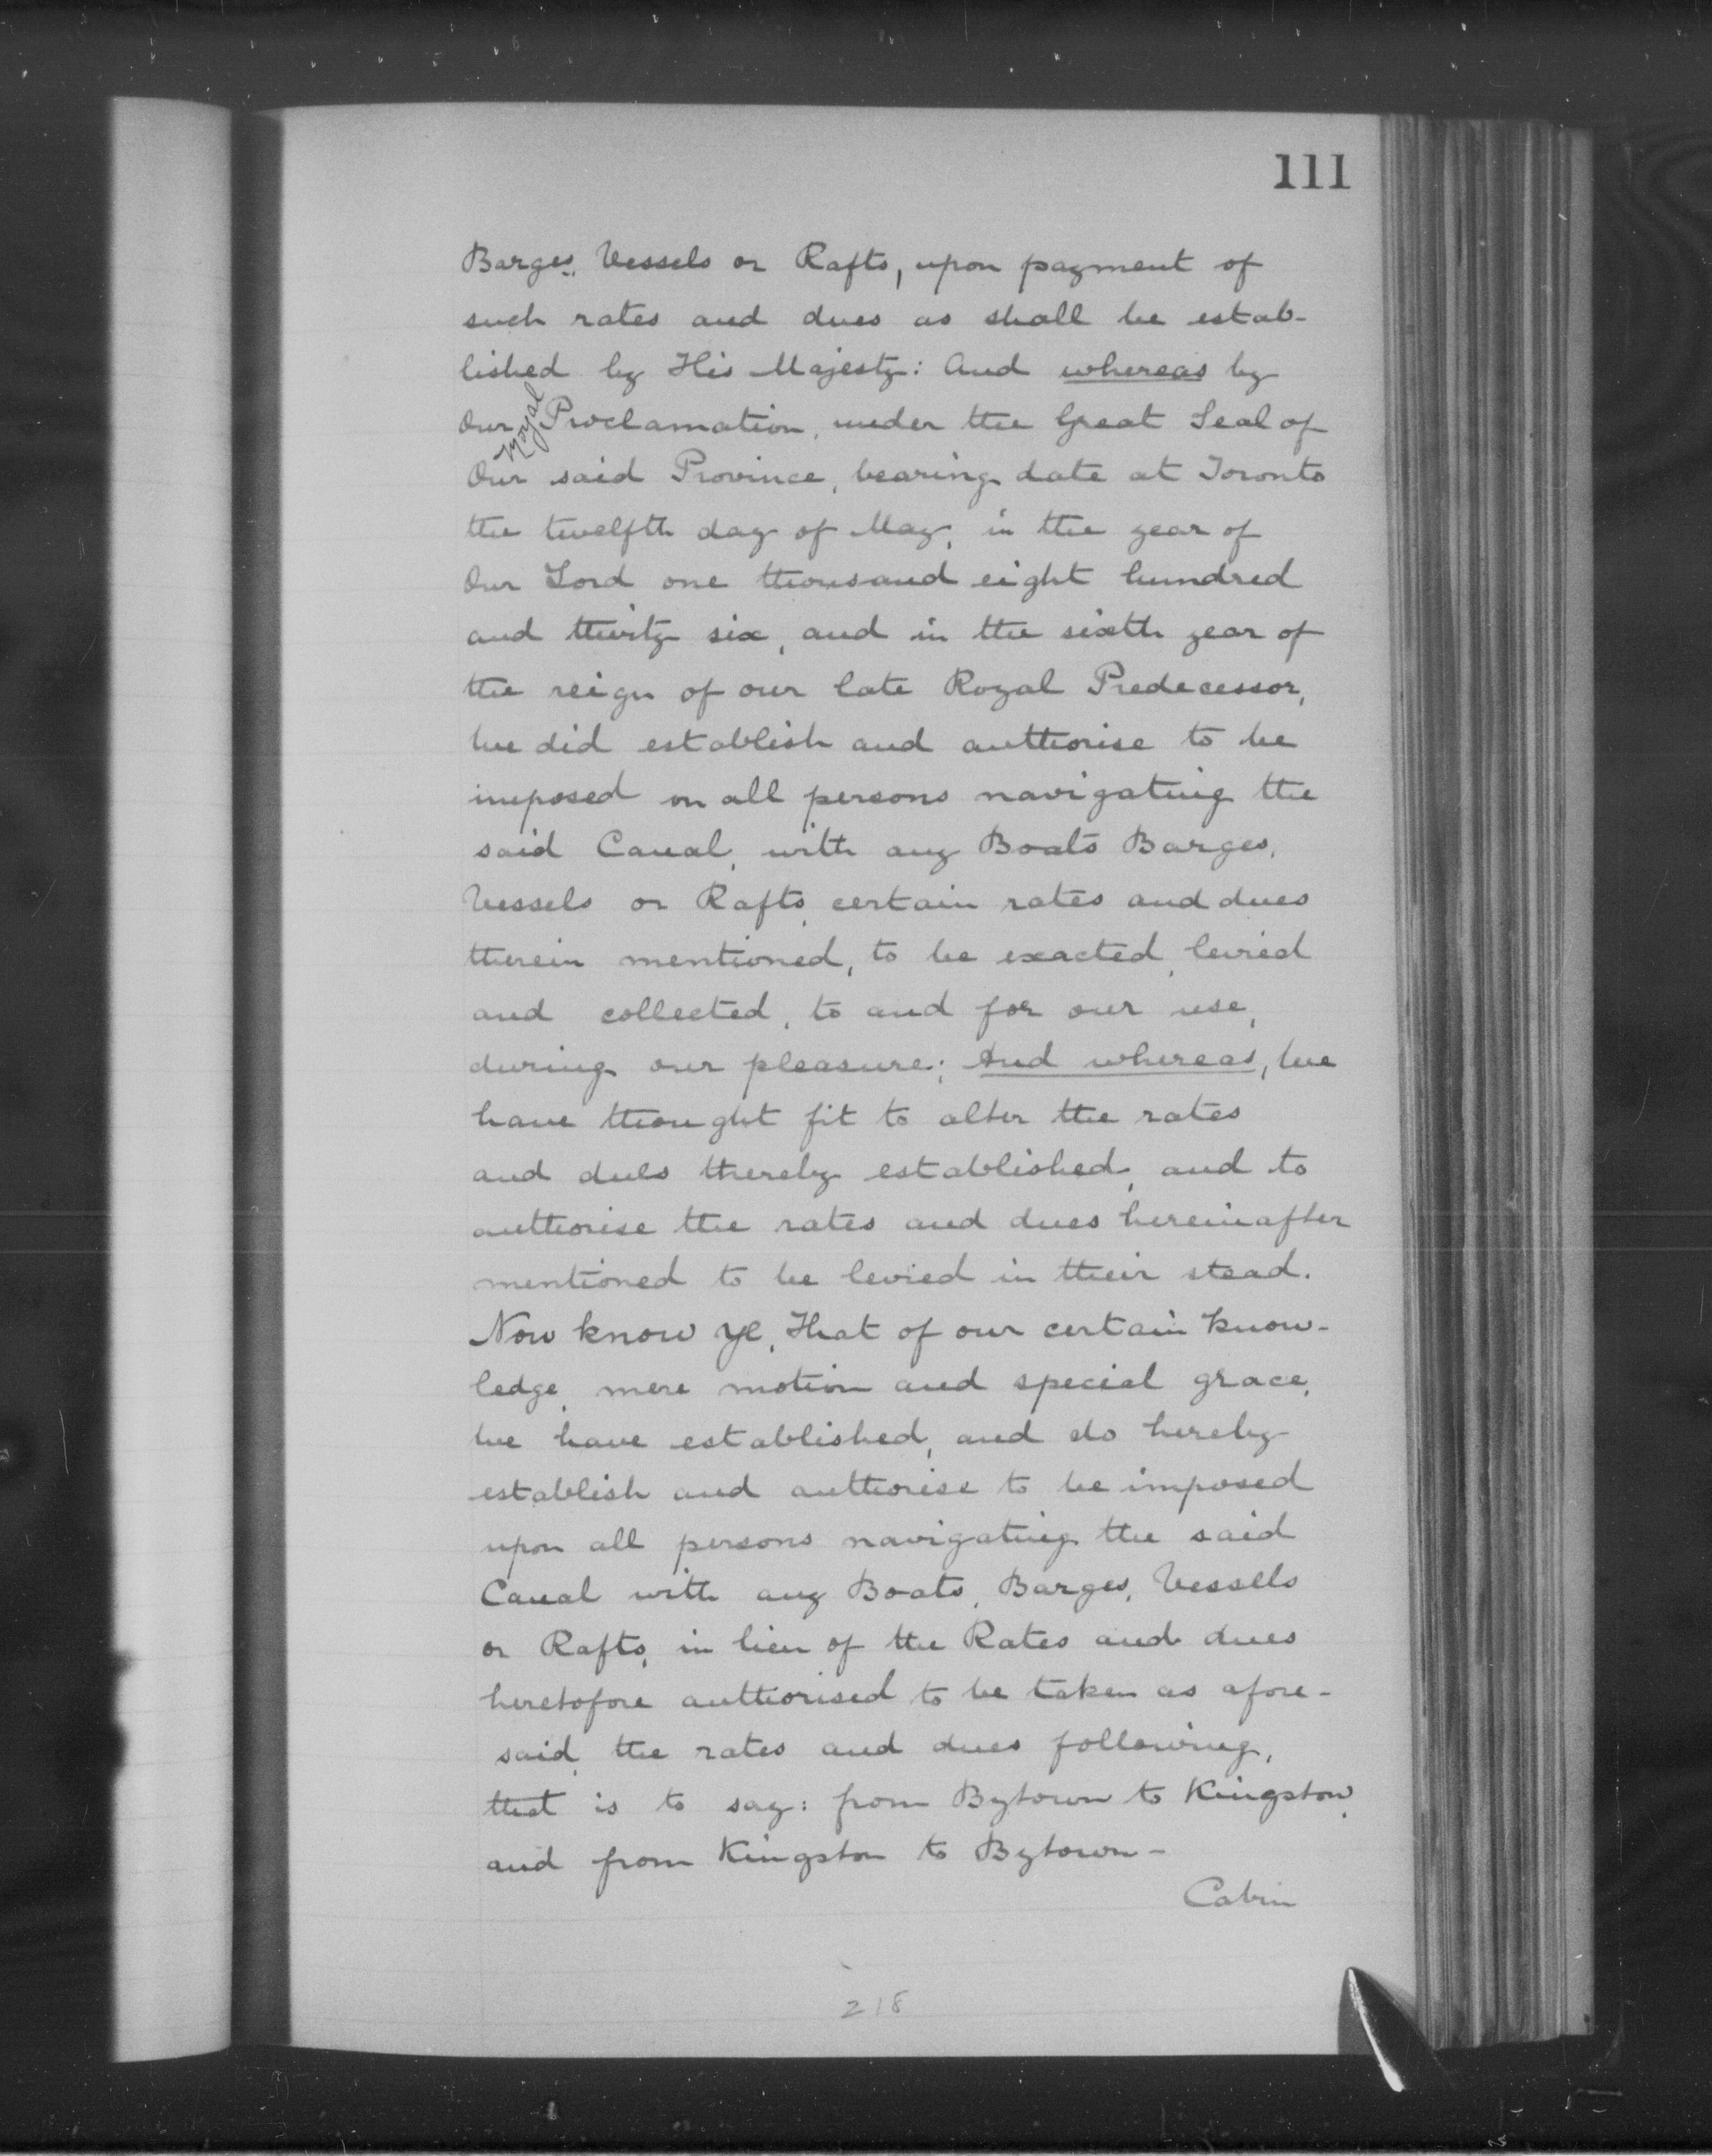 111
Barges, Vessels or Rafts, upon payment of
such rates and dues as shall be estab-
lished by His Majesty: And whereas by
Our Royal Proclamation, under the Great Seal of
Our said Province, bearing date at Toronto
the twelfth day of May, in the year of
Our Lord one thousand eight hundred
and thirty six, and in the sixth year of
the reign of our late Royal Predecessor,
We did establish and authorise to be
imposed on all persons navigating the
said Canal, with any Boats Barges,
Vessels or Rafts, certain rates and dues
therein mentioned, to be exacted, levied
and collected, to and for our use,
during our pleasure; And whereas, We
have thought fit to alter the rates
and dues thereby established, and to
authorise the rates and dues hereinafter
mentioned to be levied in their stead.
Now know Ye, That of our certain know-
ledge, mere motion and special grace,
We have established, and do hereby
establish and authorise to be imposed
upon all persons navigating the said
Canal with any Boats, Barges, Vessels
or Rafts, in lieu of the Rates and dues
heretofore authorised to be taken as afore-
said, the rates and dues following,
that is to say: from Bytown to Kingston,
and from Kingston to Bytown -
Cabin
218